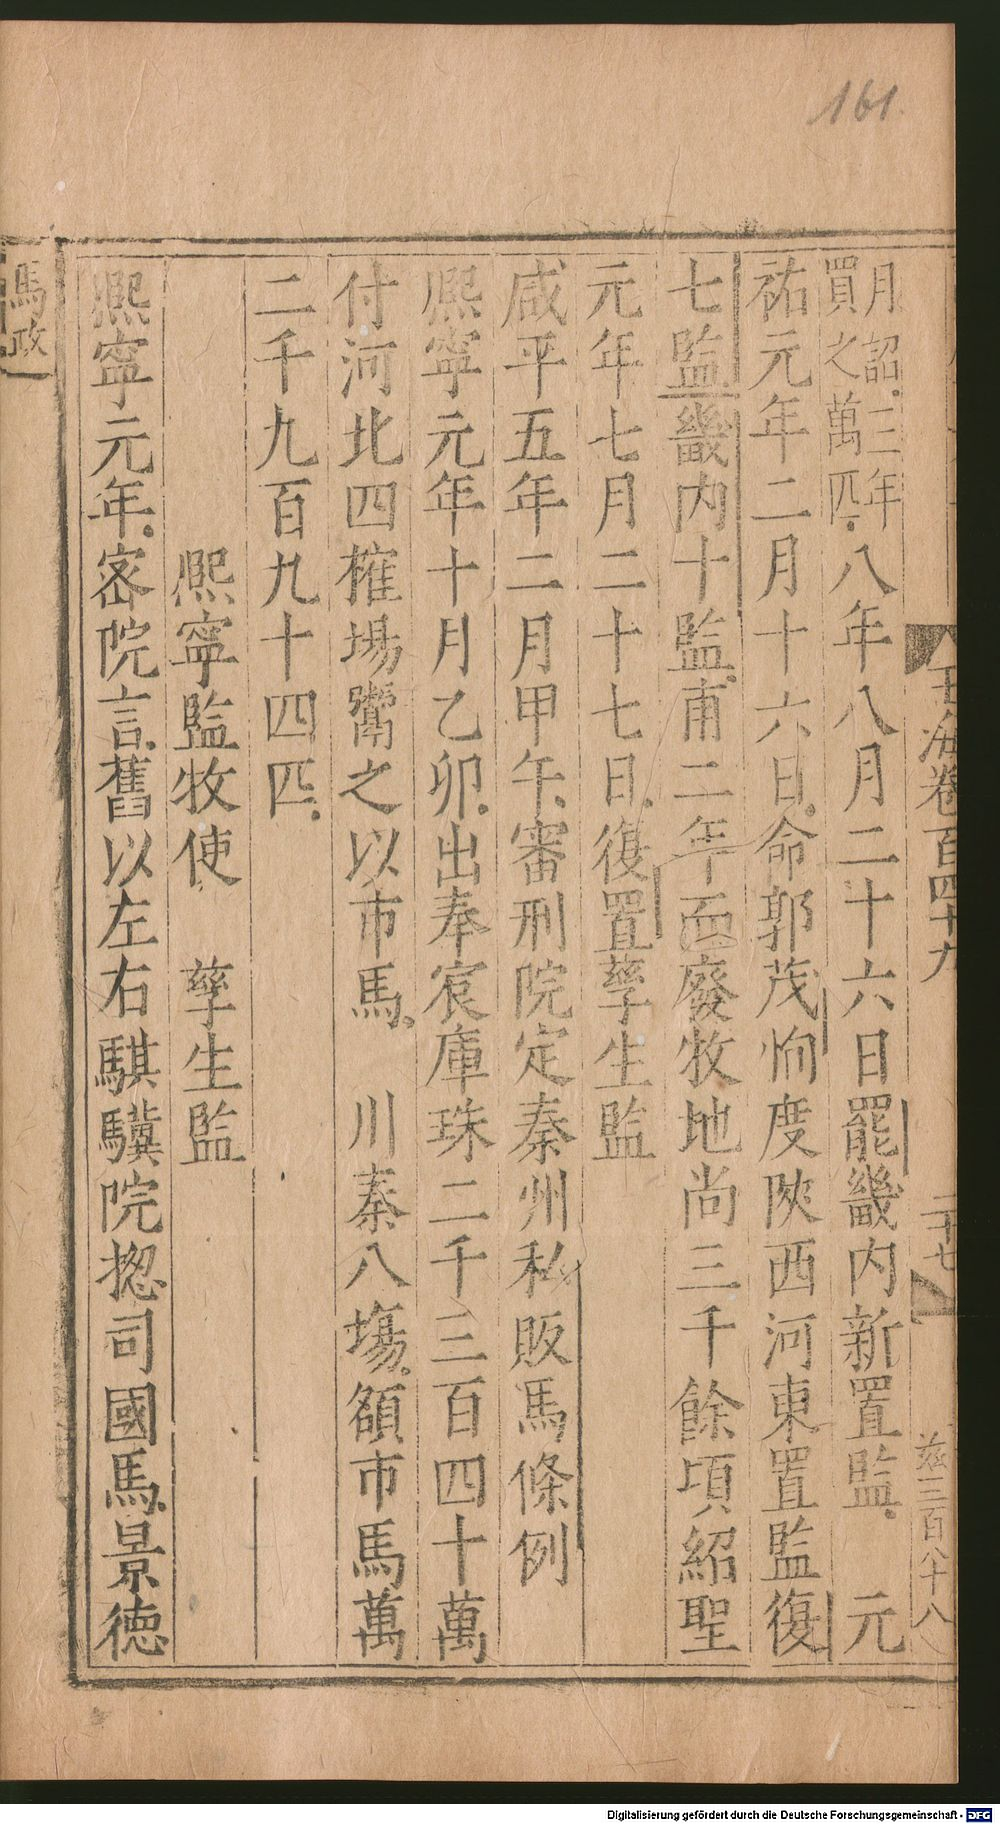 161.
玉海卷百四十九
二十七
茲三百八十八
月詔三年
買之萬匹
八年八月二十六日罷畿内新置監 元
祐元年二月十六日命郭茂恂度陝西河東置監復
七監畿内十監甫二年而廢牧地尚三千餘頃紹聖
元年七月二十七日復置孳生監
咸平五年二月甲午審刑院定秦州私販馬條例
熈寜元年十月乙卯出奉宸庫珠二千三百四十萬
付河北四榷塲鬻之以市馬 川秦八塲額市馬萬
二千九百九十四匹
熈寜監牧使 孳生監
熈寜元年宻院言舊以左右騏驥院揔司國馬景徳
馬政
Digitalisierung gefördert durch die Deutsche Forschungsgemeinschaft - DFG